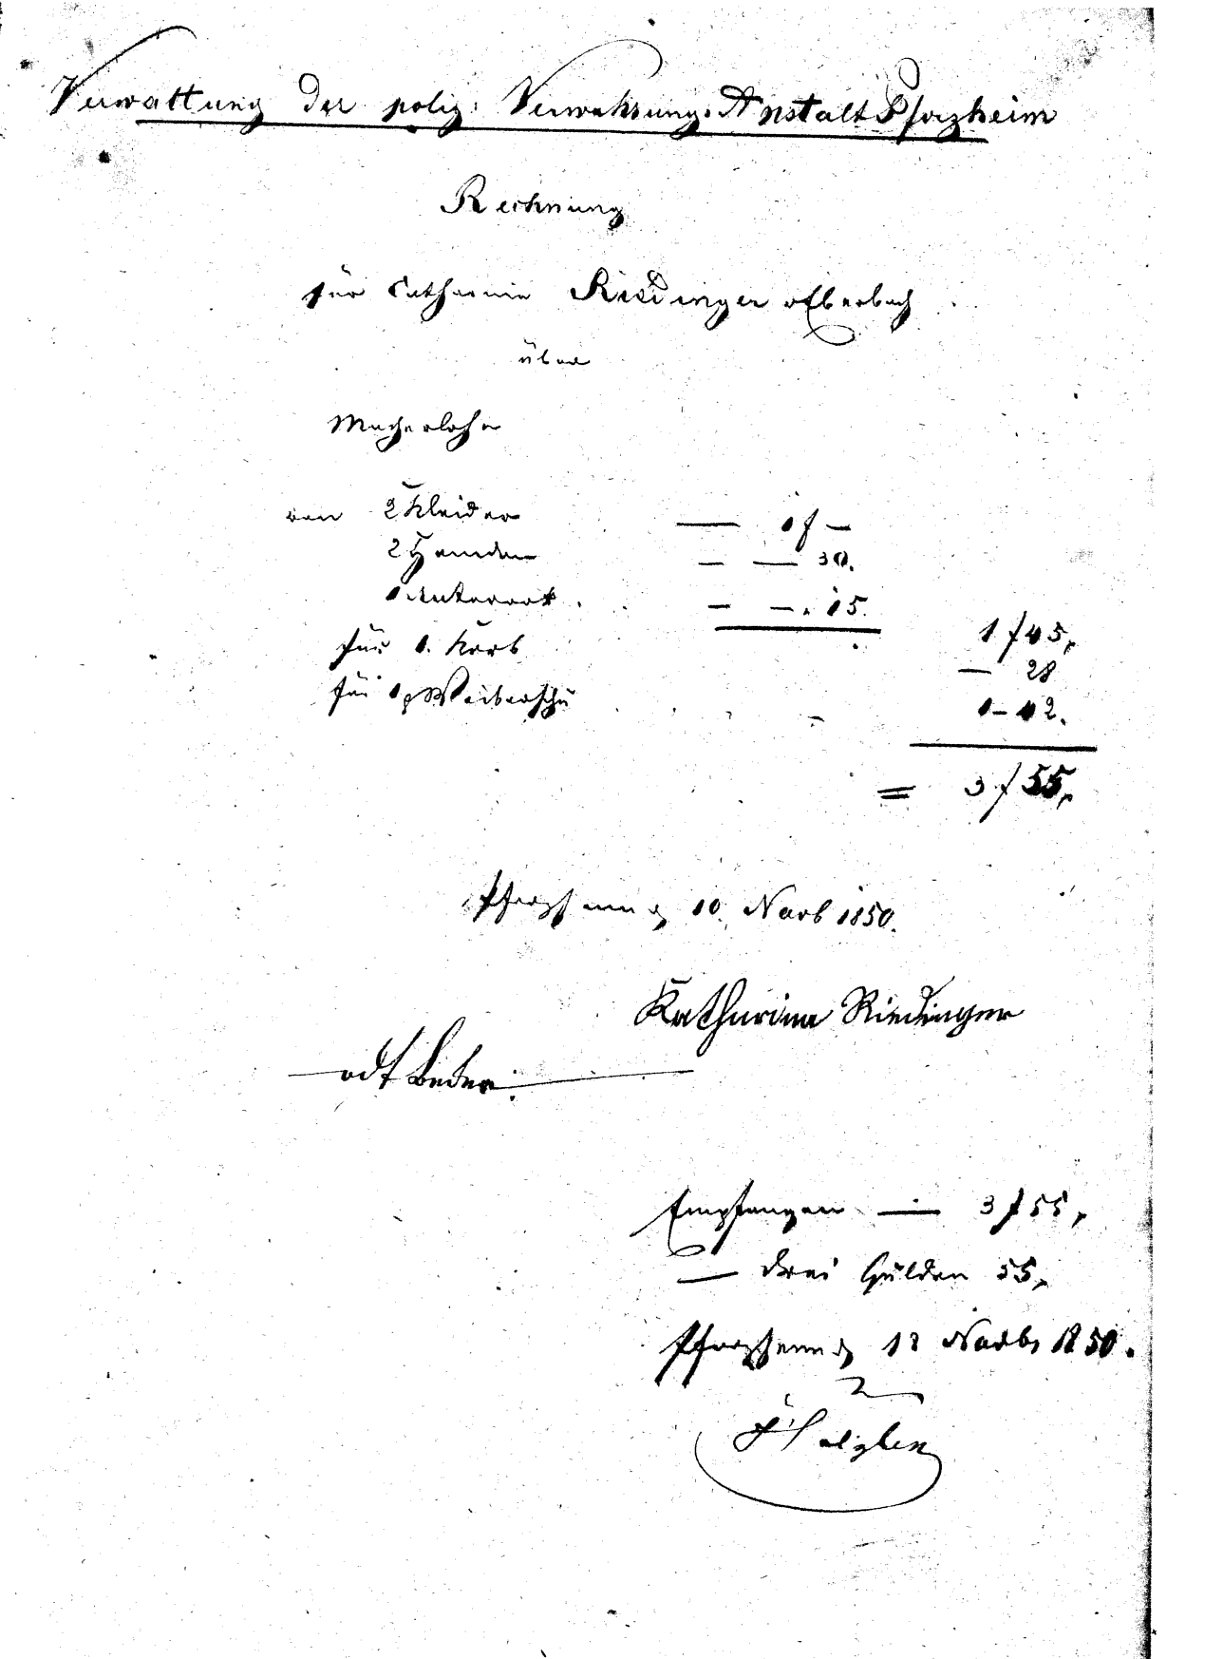 Verwaltung der poliz: Verwahrungs-Anstalt Pforzheim
Rechnung
für Catharina Riedinger v Eberbach
über
Macherlohn
von 2 Kleider — 1 f —
2 Hemden — — 30.
1 Unterrock. — —. 15.
1 f 45,
für 1. Korb — 28
für 1 p Weiberschu 1 – 42.
= 3 f 55,
Pforzheim d 10. Novb 1850.
Katharina Riedinger
Empfangen — 3 f 55,
— drei Gulden 55,
Pforzheim d 12 Novbr 1850.